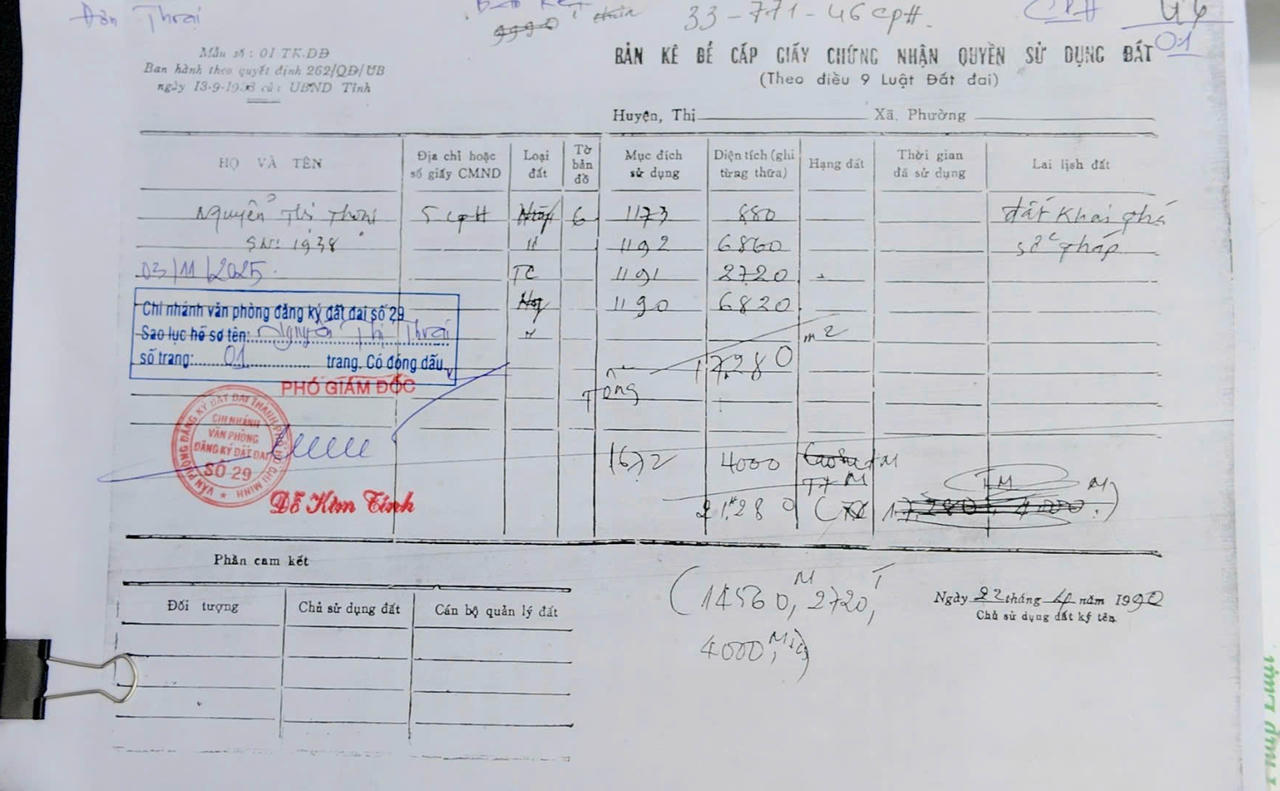 33-771-46 CPH.
CPH
46
01
Mẫu số: 01 TK.DĐ
Ban hành theo quyết định 262/QĐ/UB
ngày 13-9-19 của UBND Tỉnh
BẢN KÊ ĐỂ CẤP GIẤY CHỨNG NHẬN QUYỀN SỬ DỤNG ĐẤT
(Theo điều 9 Luật Đất đai)
Huyện, Thị Xã Phường
HỌ VÀ TÊN Địa chỉ hoặc số giấy CMND Loại đất Tờ bản đồ Mục đích sử dụng Diện tích (ghi từng thửa) Hạng đất Thời gian đã sử dụng Lai lịch đất
Nguyễn Thị 5 CPH 6 1173 880 đất Khai phá
SN: 1938 " 1192 6860
03/11/2025 TC 1191 2720
1190 6820
Chi nhánh văn phòng đăng ký đất đai số 29
Sao lục hồ sơ tên: Nguyễn Thị Thoai
số trang: 01 trang. Có đóng dấu
m2
Tổng 17,280
PHÓ GIÁM ĐỐC
VĂN PHÒNG ĐĂNG KÝ ĐẤT ĐAI THÀNH PHỐ HỒ CHÍ MINH
CHI NHÁNH
VĂN PHÒNG
ĐĂNG KÝ ĐẤT ĐAI
SỐ 29
1672 4000
Đỗ Kim Tính
21,280
Phần cam kết
Đối tượng Chủ sử dụng đất Cán bộ quản lý đất
(14560, M 2720, T
4000,
Ngày 22 tháng 4 năm 1990
Chủ sử dụng đất ký tên
Pháp Luật